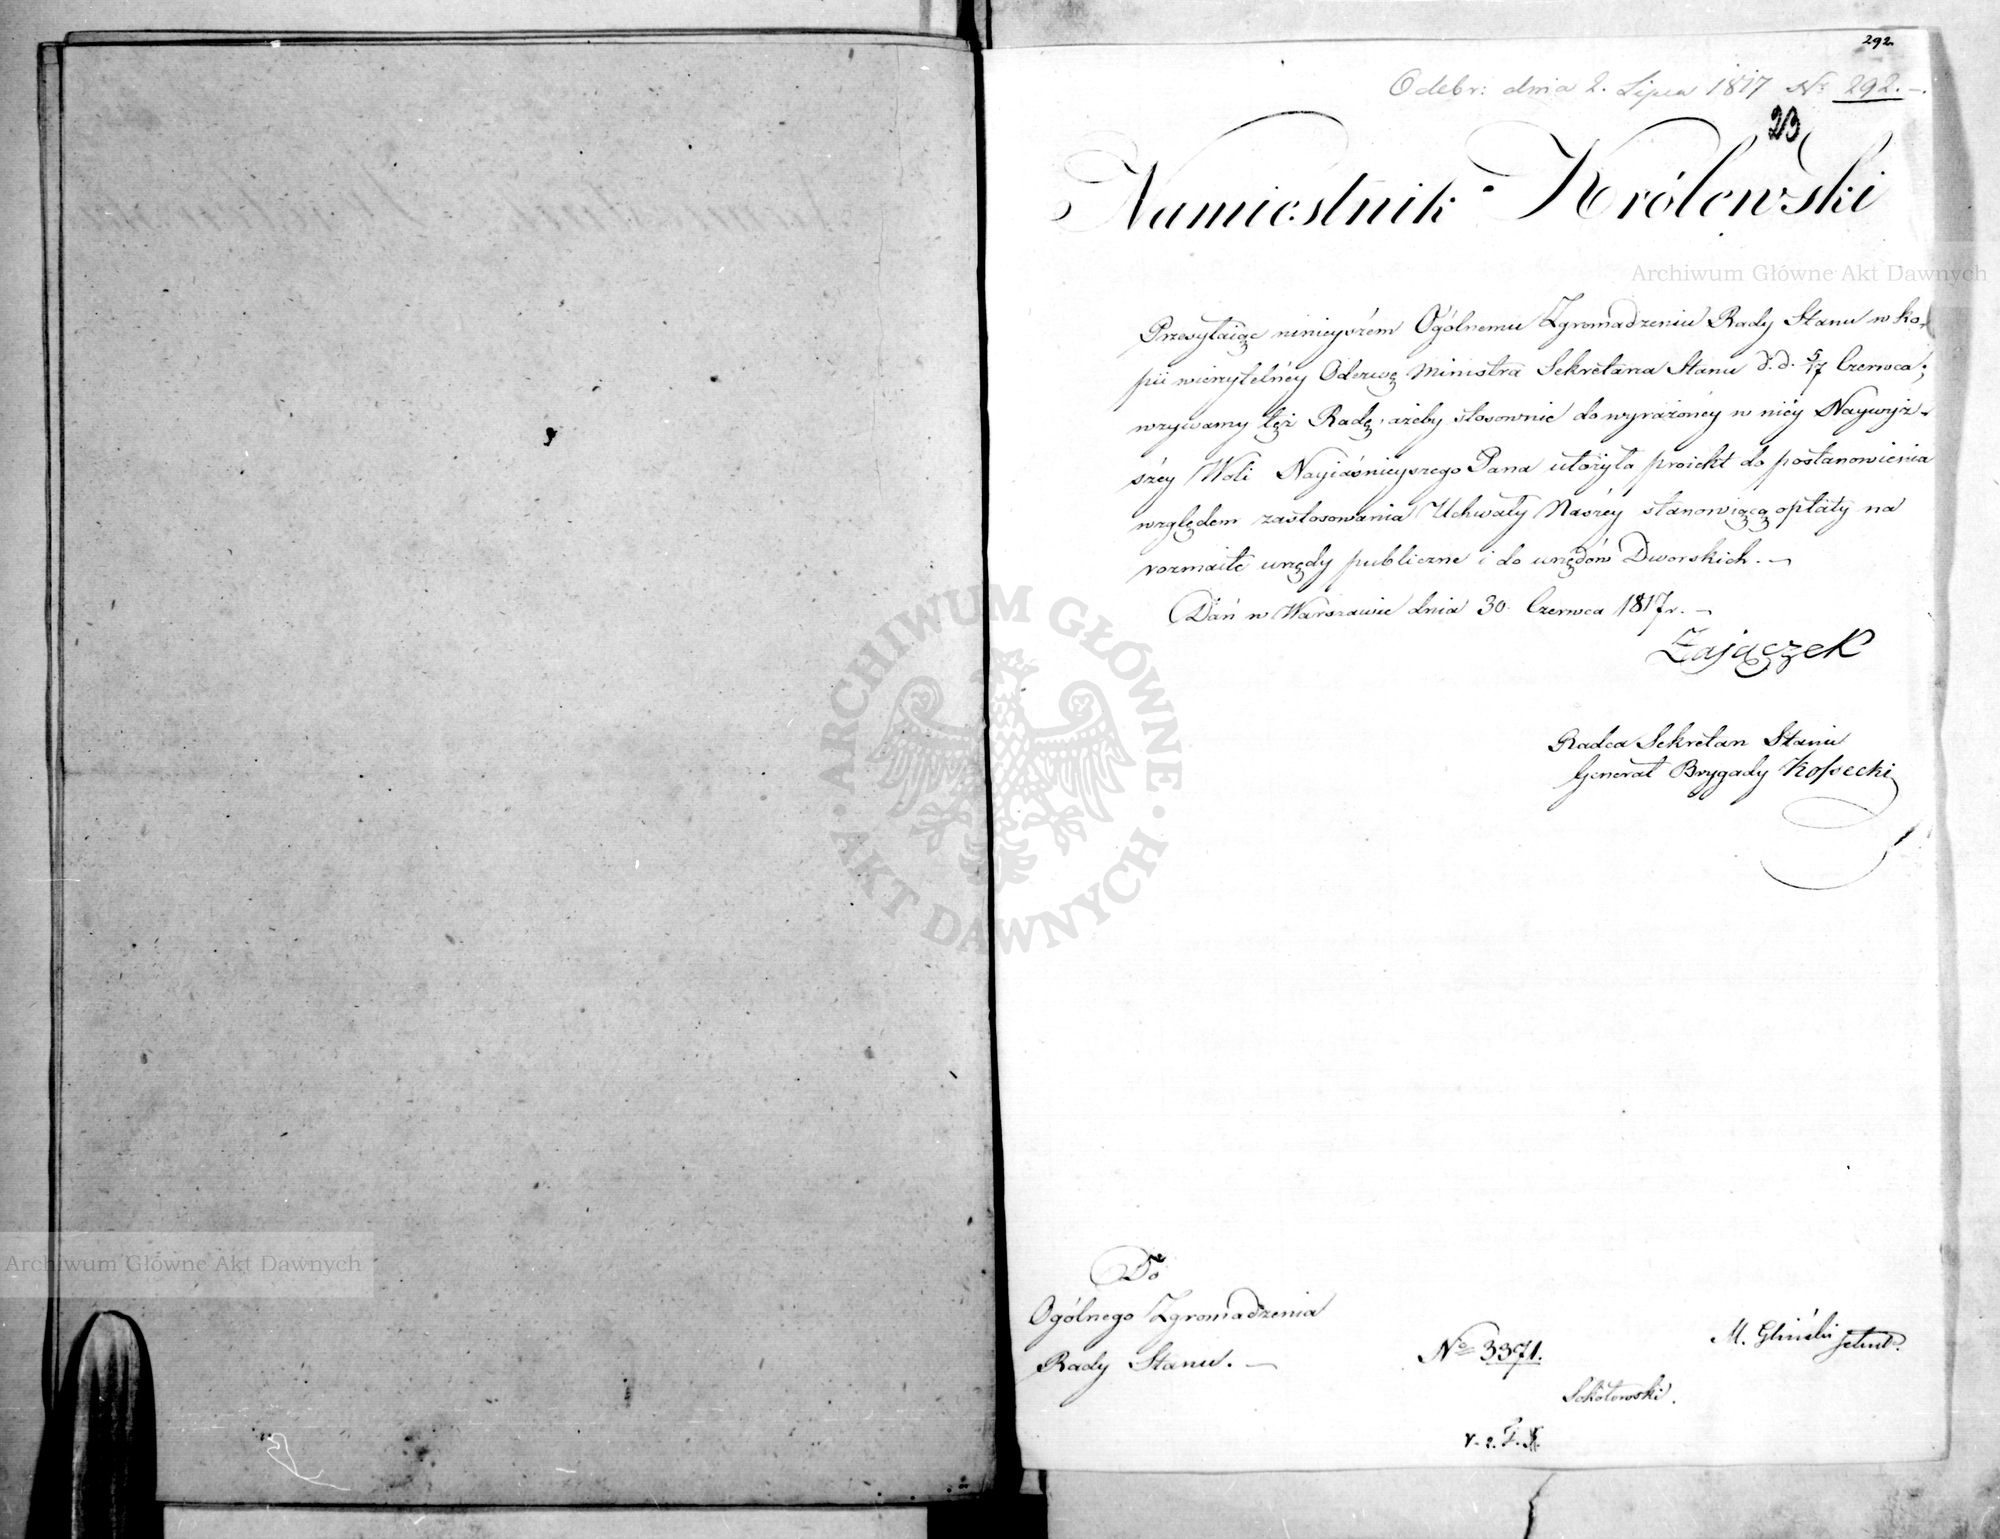 292.
Odebr: dnia 2. Lipca 1817 No 292. –.
23
Namiestnik Królewski
Archiwum Główne Akt Dawnych
Przesyłaiąc ninieyszém Ogólnemu Zgromadzeniu Rady Stanu w ko-
pii wierzytelnéy Odezwę Ministra Sekretarza Stanu d.d. 5/17 Czerwca;
wzywamy też Radę, ażeby stosownie do wyrażonéy w niéy Naywyż-
széy Woli Nayiaśnieyszego Pana ułożyła proiekt do postanowienia
względem zastosowania Uchwały Naszéy stanowiącą opłaty na
rozmaite urzędy publiczne i do urzędów Dworskich. –
Dań w Warszawie dnia 30. Czerwca 1817 r. –
Zajączek
Radca Sekretarz Stanu
Generał Brygady Kossecki
ARCHIWUM GŁÓWNE · AKT DAWNYCH ·
Archiwum Główne Akt Dawnych
Do
Ogólnego Zgromadzenia
Rady Stanu. –
No 3371.
M. Gliński
Sokołowski.